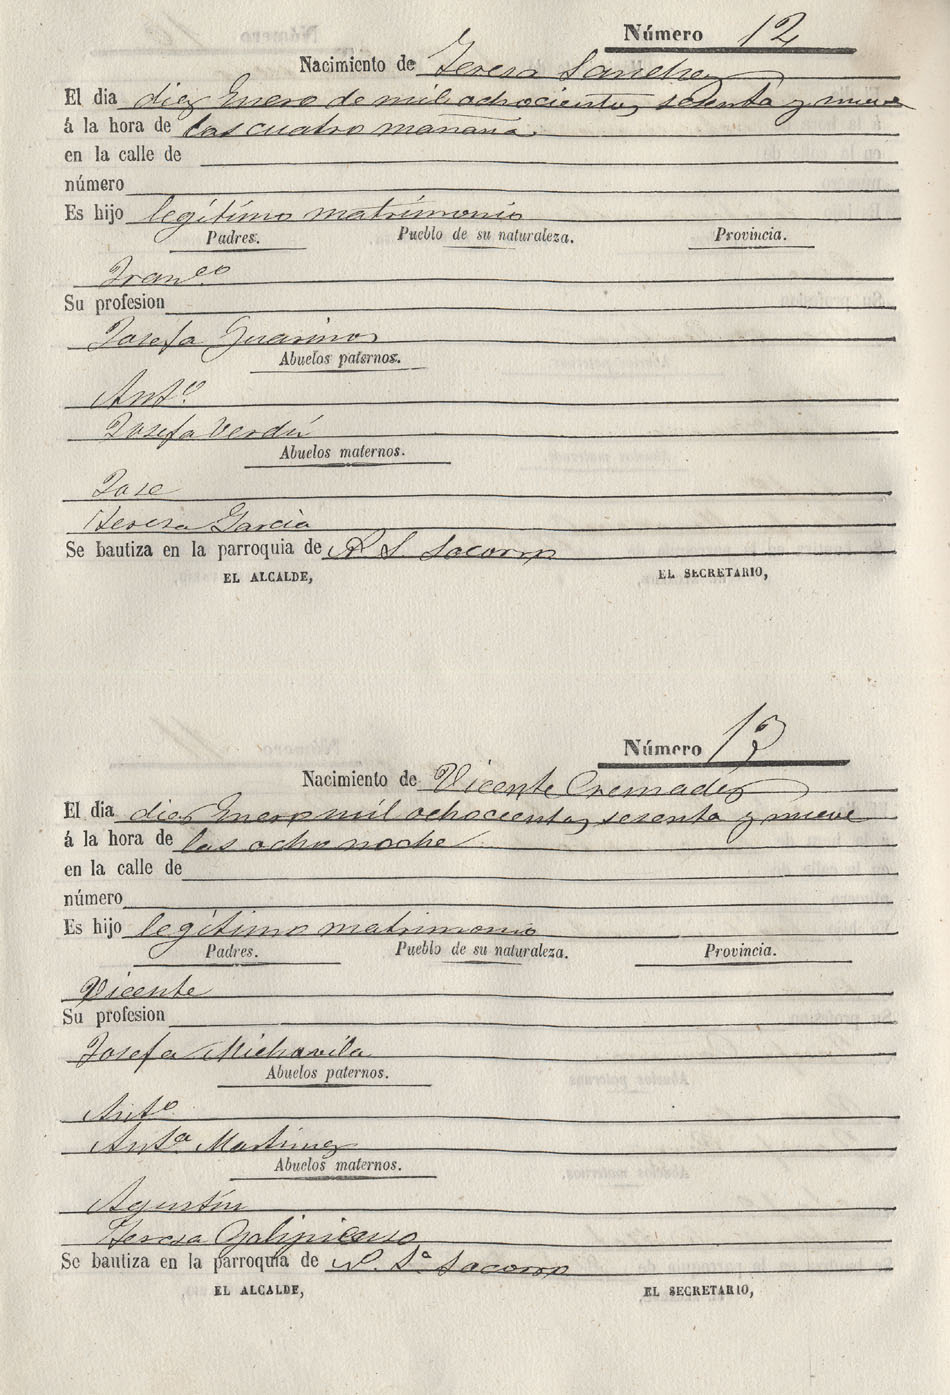 Número 12
Nacimiento de Teresa Sanchez
El dia diez Enero de mil ochocientos sesenta y nueve
á la hora de las cuatro mañana.
en la calle de
número
Es hijo legítimo matrimonio
Padres. Pueblo de su naturaleza. Provincia.
Franco
Su profesion
Josefa Guarinos
Abuelos paternos.
Anto
Josefa Verdú
Abuelos maternos.
Jose
Teresa Garcia
Se bautiza en la parroquia de N S Socorro
EL ALCALDE, EL SECRETARIO,
Número 13
Nacimiento de Vicente Cremadez
El dia diez Enero mil ochocientos sesenta y nueve
á la hora de las ocho noche
en la calle de
número
Es hijo legítimo matrimonio
Padres. Pueblo de su naturaleza. Provincia.
Vicente
Su profesion
Josefa Michavila
Abuelos paternos.
Anto
Anta Martinez
Abuelos maternos.
Agustín
Teresa
Se bautiza en la parroquia de N. Sa Socorro
EL ALCALDE, EL SECRETARIO,